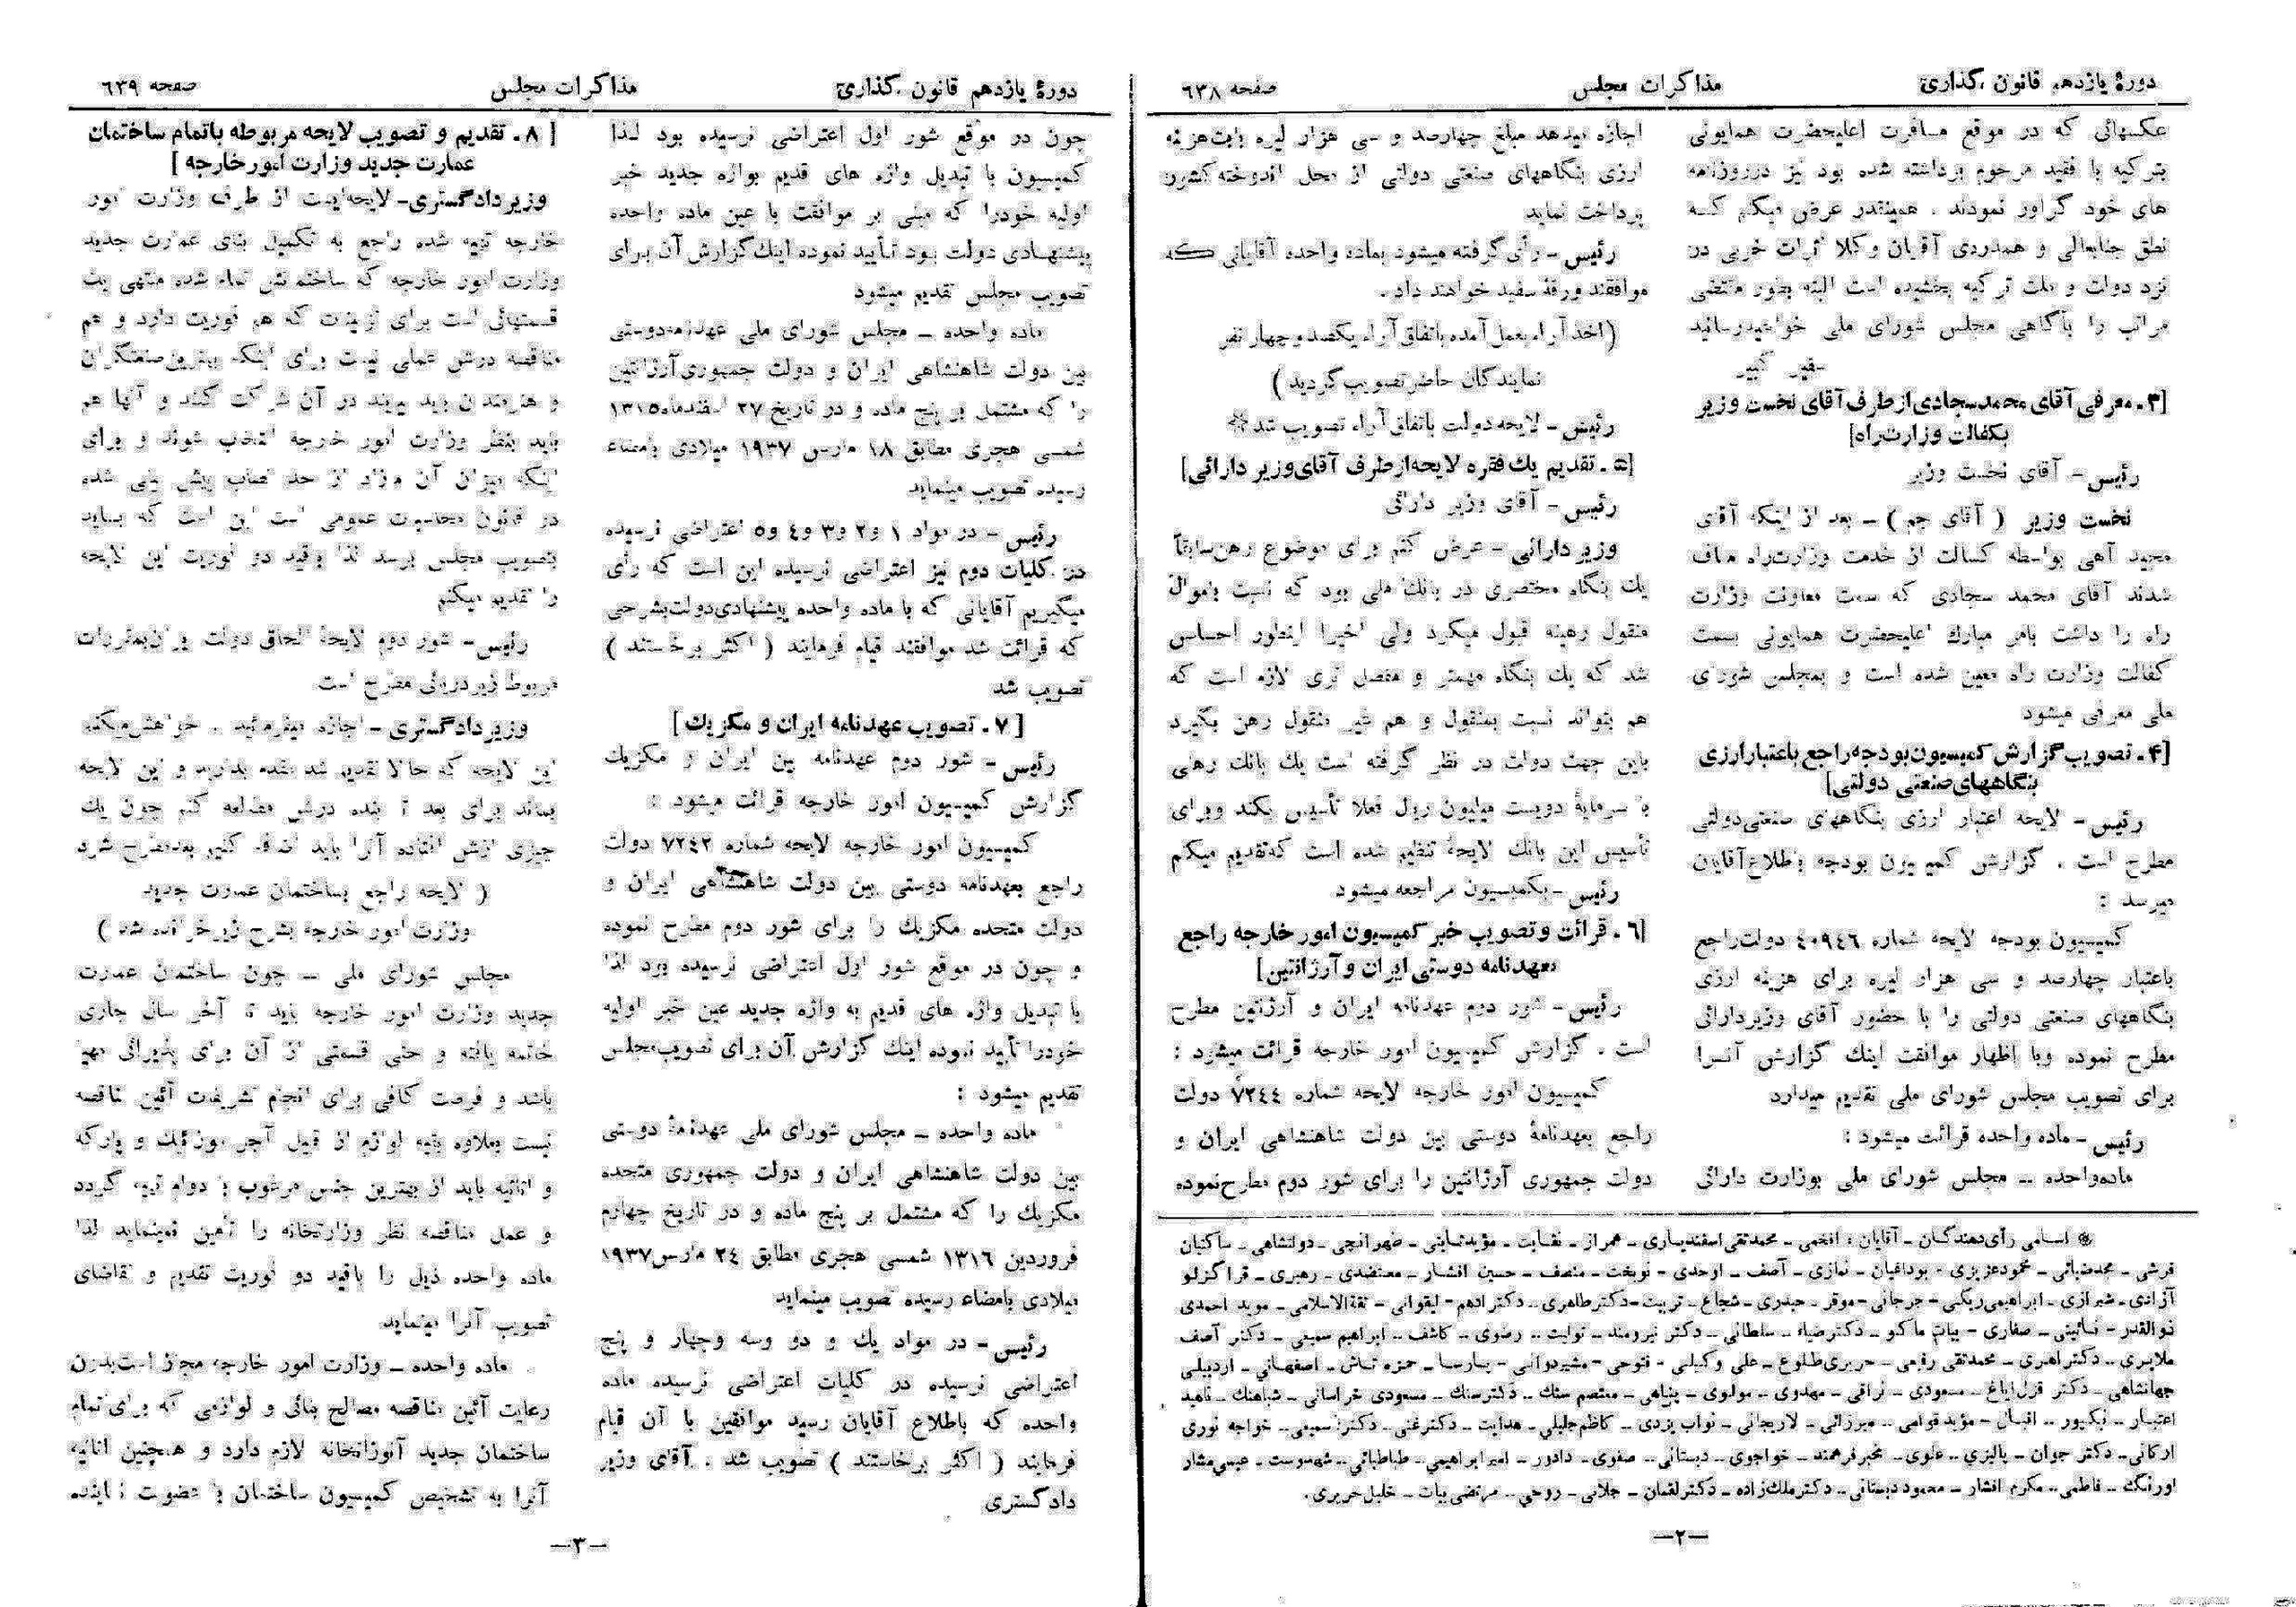 دورهٔ یازدهم قانون گذاری
مذاکرات مجلس
صفحه ٦٣٨
عکسهائی که در موقع مسافرت اعلیحضرت همایونی
بترکیه با فقید مرحوم برداشته شده بود نیز درروزنامه
های خود گراور نمودند . همینقدر عرض میکنم که
نطق جنابعالی و همدردی آقایان وکلا اثرات خوبی در
نزد دولت و ملت ترکیه بخشیده است البته بطور مقتضی
مراتب را بآگاهی مجلس شورای ملی خواهیدرسانید
سفیر کبیر
[۳ـ معرفی آقای محمدسجادی ازطرف آقای نخست وزیر
بکفالت وزارت‌راه]
رئیس - آقای نخست وزیر
نخست وزیر ( آقای جم ) - بعد از اینکه آقای
مجید آهی بواسطه کسالت از خدمت وزارت‌راه معاف
شدند آقای محمد سجادی که سمت معاونت وزارت
راه را داشت بامر مبارك اعلیحضرت همایونی بسمت
کفالت وزارت راه معین شده است و بمجلس شورای
ملی معرفی میشود
[۴ـ تصویب گزارش کمیسیون بودجه راجع باعتبارارزی
بنگاههای صنعتی دولتی]
رئیس - لایحه اعتبار ارزی بنگاههای صنعتی دولتی
مطرح است . گزارش کمیسیون بودجه باطلاع آقایان
میرسد :
کمیسیون بودجه لایحه شماره ٤٠٩٤٦ دولت راجع
باعتبار چهارصد و سی هزار لیره برای هزینه ارزی
بنگاههای صنعتی دولتی را با حضور آقای وزیردارائی
مطرح نموده وبا اظهار موافقت اینك گزارش آنرا
برای تصویب مجلس شورای ملی تقدیم میدارد
رئیس - ماده واحده قرائت میشود :
ماده‌واحده ــ مجلس شورای ملی بوزارت دارائی
اجازه میدهد مبلغ چهارصد و سی هزار لیره بابت‌هزینه
ارزی بنگاههای صنعتی دولتی از محل اندوخته کشور
پرداخت نماید
رئیس - رأی گرفته میشود بماده واحده آقایانی که
موافقند ورقهٔ سفید خواهند داد .
(اخذ آراء بعمل آمده باتفاق آراء یکصد و چهار نفر
نمایندگان حاضر تصویب گردید )
رئیس - لایحه دولت باتفاق آراء تصویب شد *
[۵ ـ تقدیم یك فقره لایحه ازطرف آقای وزیر دارائی]
رئیس - آقای وزیر دارائی
وزیر دارائی - عرض کنم برای موضوع رهن سابقاً
یك بنگاه مختصری در بانك ملی بود که نسبت باموال
منقول رهینه قبول میکرد ولی اخیراً اینطور احساس
شد که یك بنگاه مهمتر و مفصل تری لازم است که
هم بتواند نسبت بمنقول و هم غیر منقول رهن بگیرد
باین جهت دولت در نظر گرفته است یك بانك رهنی
با سرمایهٔ دویست میلیون ریال فعلا تأسیس بکند وبرای
تأسیس این بانك لایحهٔ تنظیم شده است که تقدیم میکنم
رئیس - بکمیسیون مراجعه میشود
[٦ ـ قرائت و تصویب خبر کمیسیون امور خارجه راجع
بعهدنامه دوستی ایران و آرژانتین]
رئیس - شور دوم عهدنامه ایران و آرژنتین مطرح
است . گزارش کمیسیون امور خارجه قرائت میشود :
کمیسیون امور خارجه لایحه شماره ٧٢٤٤ دولت
راجع بعهدنامهٔ دوستی بین دولت شاهنشاهی ایران و
دولت جمهوری آرژانتین را برای شور دوم مطرح نموده
* اسامی رأی‌دهندگان ـ آقایان : افخمی ـ محمدتقی اسفندیاری ـ همراز ـ نقابت ـ مؤیدثابتی ـ طهرانچی ـ دولتشاهی ـ ساکنیان
قرشی ـ مجدضیائی ـ محمودعزیزی ـ بوداغیان ـ نمازی ـ آصف ـ اوحدی ـ نوبخت ـ منصف ـ حسین افشار ـ معتضدی ـ رهبری ـ قراگزلو
آزادی ـ شیرازی ـ ابراهیمی ریگی ـ جرجانی ـ موقر ـ حیدری ـ شجاع ـ تربیت ـ دکترطاهری ـ دکتر ادهم ـ لیقوانی ـ ثقة‌الاسلامی ـ موید احمدی
ذوالقدر ـ نائینی ـ صفاری ـ بیات ماکو ـ دکترضیاء ـ سلطانی ـ دکتر نیرومند ـ نوابت ـ رضوی ـ کاشف ـ ابراهیم سمیعی ـ دکتر آصف
ملایری ـ دکتر اهری ـ محمدتقی رفیعی ـ حریری طلوع ـ علی وکیلی ـ فتوحی ـ مشیردوانی ـ پارسا ـ حمزه تاش ـ اصفهانی ـ اردبیلی
جهانشاهی ـ دکتر قزل‌ایاغ ـ مسعودی ـ نراقی ـ مهدوی ـ مولوی ـ پناهی ـ معتصم سنك ـ دکترسنك ـ مسعودی خراسانی ـ شباهنك ـ ناهید
اعتبار ـ نیکپور ـ اقبال ـ مؤیدقوامی ـ میرزائی ـ لاریجانی ـ نواب یزدی ـ کاظم جلیلی ـ هدایت ـ دکترغنی ـ دکترسمیعی ـ خواجه نوری
ارکانی ـ دکتر جوان ـ پالیزی ـ علوی ـ مخبرفرهمند ـ خواجوی ـ دبستانی ـ صفوی ـ دادور ـ امیرابراهیمی ـ طباطبائی ـ شهدوست ـ عیسی مشار
اورنگ ـ فاطمی ـ مکرم افشار ـ محموددبستانی ـ دکترملك‌زاده ـ دکترلقمان ـ جلائی ـ روحی ـ مرتضی بیات ـ خلیل حریری .
—٢—
دورهٔ یازدهم قانون گذاری
مذاکرات مجلس
صفحه ٦٣٩
چون در موقع شور اول اعتراضی نرسیده بود لذا
کمیسیون با تبدیل واژه های قدیم بواژه جدید خبر
اولیه خودرا که مبنی بر موافقت با عین ماده واحده
پیشنهادی دولت بود تأیید نموده اینك گزارش آن برای
تصویب مجلس تقدیم میشود
ماده واحده ــ مجلس شورای ملی عهدنامه‌دوستی
بین دولت شاهنشاهی ایران و دولت جمهوری آرژانتین
را که مشتمل بر پنج ماده و در تاریخ ٢٧ اسفندماه ١٣١٥
شمسی هجری مطابق ١٨ مارس ١٩٣٧ میلادی بامضاء
رسیده تصویب مینماید
رئیس - در مواد ١ و٢ و٣ و٤ و٥ اعتراضی نرسیده
در کلیات دوم نیز اعتراضی نرسیده این است که رأی
میگیریم آقایانی که با ماده واحده پیشنهادی دولت بشرحی
که قرائت شد موافقند قیام فرمایند ( اکثر برخاستند )
تصویب شد
[ ٧ ـ تصویب عهدنامه ایران و مکزیك ]
رئیس - شور دوم عهدنامه بین ایران و مکزیك
گزارش کمیسیون امور خارجه قرائت میشود :
کمیسیون امور خارجه لایحه شماره ٧٢٤٢ دولت
راجع بعهدنامه دوستی بین دولت شاهنشاهی ایران و
دولت متحده مکزیك را برای شور دوم مطرح نموده
و چون در موقع شور اول اعتراضی نرسیده بود لذا
با تبدیل واژه های قدیم به واژه جدید عین خبر اولیه
خودرا تأیید نموده اینك گزارش آن برای تصویب مجلس
تقدیم میشود :
ماده واحده ــ مجلس شورای ملی عهدنامهٔ دوستی
بین دولت شاهنشاهی ایران و دولت جمهوری متحده
مکزیك را که مشتمل بر پنج ماده و در تاریخ چهارم
فروردین ١٣١٦ شمسی هجری مطابق ٢٤ مارس ١٩٣٧
میلادی بامضاء رسیده تصویب مینماید
رئیس - در مواد یك و دو وسه وچهار و پنج
اعتراضی نرسیده در کلیات اعتراضی نرسیده ماده
واحده که باطلاع آقایان رسید موافقین با آن قیام
فرمایند ( اکثر برخاستند ) تصویب شد . آقای وزیر
دادگستری
[ ٨ ـ تقدیم و تصویب لایحه مربوطه باتمام ساختمان
عمارت جدید وزارت امورخارجه ]
وزیر دادگستری - لایحه‌ایست از طرف وزارت امور
خارجه تهیه شده راجع به تکمیل بنای عمارت جدید
وزارت امور خارجه که ساختمانش تمام شده منتهی یك
قسمتهائی است برای تزئینات که هم فوریت دارد و هم
مناقصه درش عملی نیست برای اینکه بهترین صنعتگران
و هنرمندان باید بیایند در آن شرکت کنند و آنها هم
باید بنظر وزارت امور خارجه انتخاب شوند و برای
اینکه میزان آن مازاد از حد نصاب پیش بینی شده
در قانون محاسبات عمومی است این است که باید
بتصویب مجلس برسد لذا باقید دو فوریت این لایحه
را تقدیم میکنم
رئیس - شور دوم لایحهٔ الحاق دولت ایران‌بمقررات
مربوط زیردریائی مطرح است
وزیر دادگستری - اجازه میفرمائید . خواهش میکنم
این لایحه که حالا تقدیم شد مقدم بدارید و این لایحه
بماند برای بعد تا بنده درش مطالعه کنم چون یك
چیزی ازش افتاده آنرا باید اضافه کنیم بعدمطرح شود
( لایحه راجع بساختمان عمارت جدید
وزارت امور خارجه بشرح زیر خوانده شد )
مجلس شورای ملی ــ چون ساختمان عمارت
جدید وزارت امور خارجه باید تا آخر سال جاری
خاتمه یافته و حتی قسمتی از آن برای پذیرائی مهیا
باشد و فرصت کافی برای انجام تشریفات آئین مناقصه
نیست بعلاوه بقیه لوازم از قبیل آجر موزائیك و پارکه
و اثاثیه باید از بهترین جنس مرغوب با دوام تهیه گردد
و عمل مناقصه نظر وزارتخانه را تأمین نمینماید لذا
ماده واحده ذیل را باقید دو فوریت تقدیم و تقاضای
تصویب آنرا مینماید
ماده واحده ــ وزارت امور خارجه مجاز است‌بدون
رعایت آئین مناقصه مصالح بنائی و لوازمی که برای تمام
ساختمان جدید آنوزارتخانه لازم دارد و همچنین اثاثیه
آنرا به تشخیص کمیسیون ساختمان با عضویت نماینده
—٣—